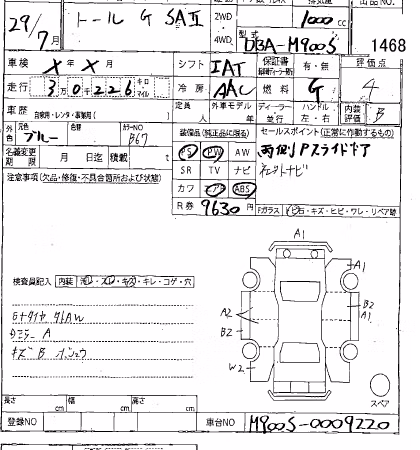 29/7月 トール G SAⅡ
2WD
4WD
1000cc
型式 DBA-M900S
1468
車検 X年X月
シフト IAT
保証書 有・無
評価点 4
走行 3万0千226 キロ マイル
冷房 AAC
燃料 G
車歴 自家用・レンタ・事業用( )
定員 人
外車モデル 年
ディーラー 並行
ハンドル 左・右
内装評価 B
外色 元色 ブルー 色替 カラーNO B67
装備品(純正品に限る)
セールスポイント(正常に作動するもの)
PS PW AW
両側Pスライドドア
名義変更期限 月 日迄 積載 t
SR TV ナビ
注意事項(欠品・修復・不具合箇所および状態)
カワ エアB ABS
R券 9630円
Fガラス 飛石・キズ・ヒビ・ワレ・リペア跡
検査員記入 内装 汚レ・スレ・キズ・キレ・コゲ・穴
A1
A1
A2
B2
B2
A1
W2
スペア
キズ B
長さ cm 幅 cm 高さ cm
登録NO
車台NO M900S-0009220